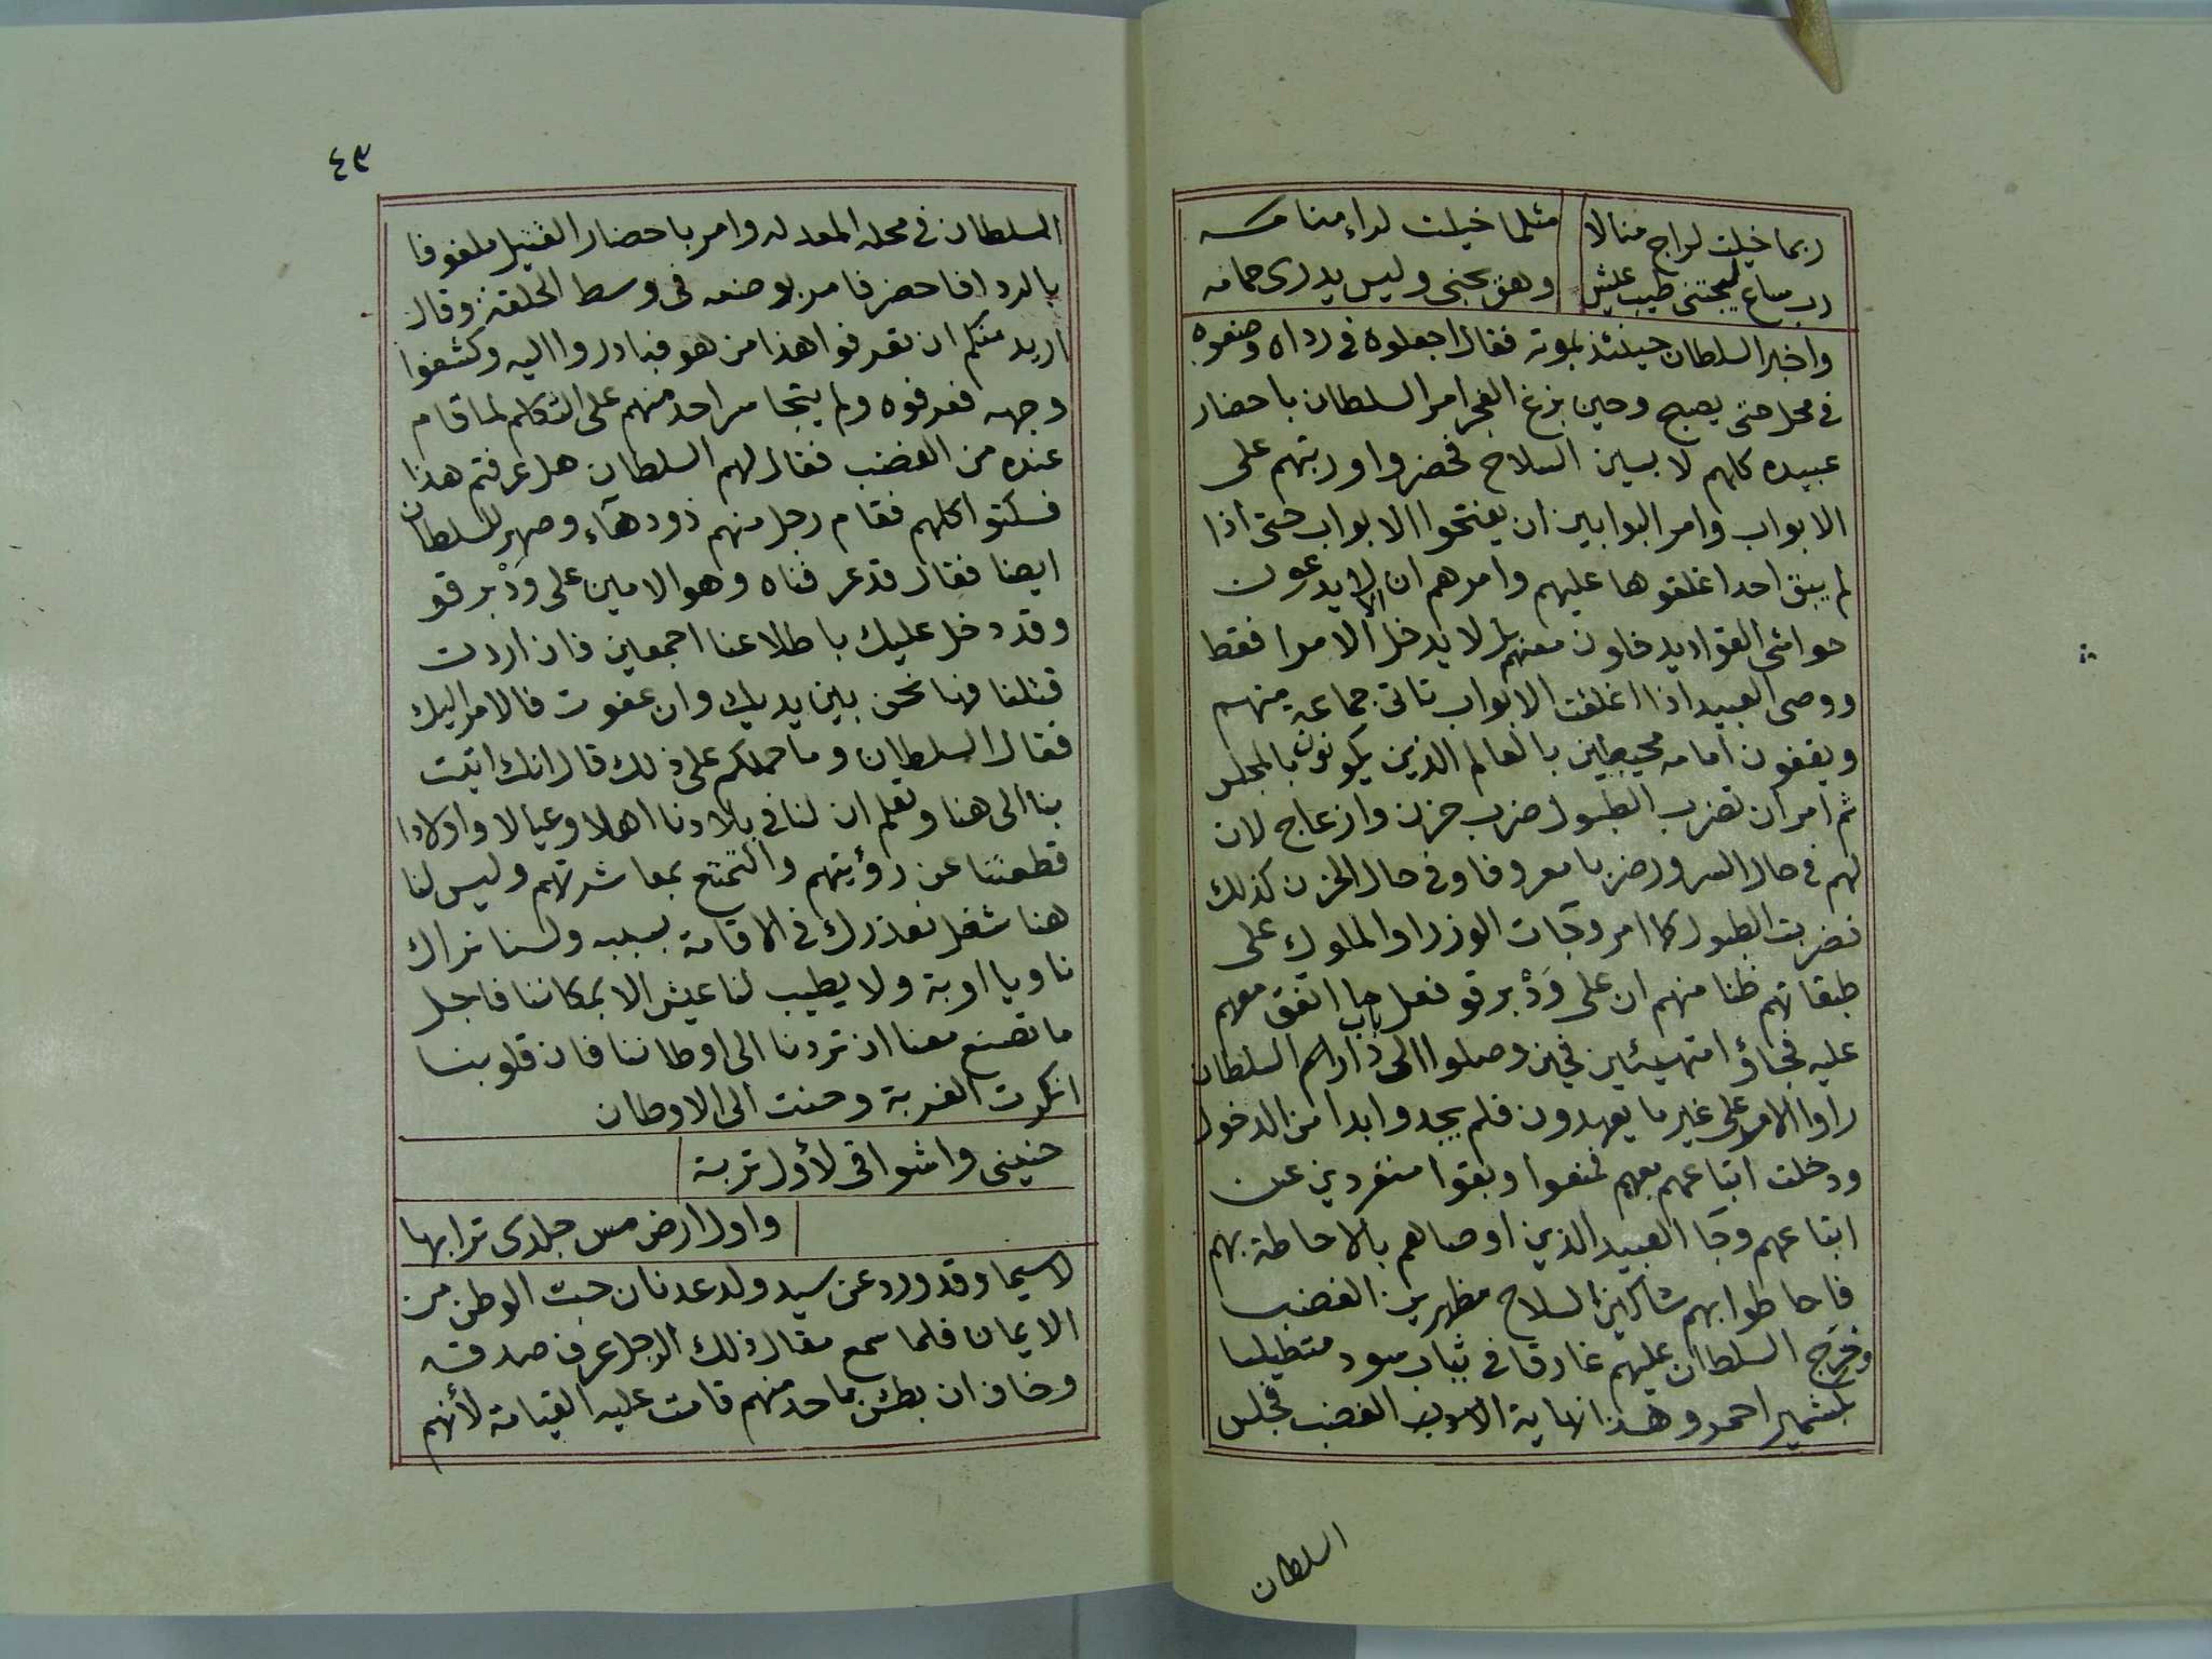 ربما خيلت لراج منالا مثلما خيلت لراء منامه
رب ساع ليجتنى طيب عيش وهو يجنى وليس يدرى حمامه
واخبر السلطان حينئذ بموته فقال اجعلوه فى رداه وضعوه
فى محل حتى يصبح وحين بزغ الفجر امر السلطان باحضار
عبيده كلهم لابسين السلاح فحضروا ورتبهم على
الابواب وامر البوابين ان يفتحوا الابواب حتى اذا
لم يبق احد اغلقوها عليهم وامرهم ان لا يدعون
حواشى القواد يدخلون معهم بل لا يدخل الا الامرا فقط
ووصى العبيد اذا اغلقت الابواب تاتى جماعة منهم
ويقفون امامه محيطين بالعالم الذين يكونون بالمجلس
ثم امر ان تضرب الطبول ضرب حزن وازعاج لان
لهم فى حال السرور ضربا معروفا وفى حال الحزن كذلك
فضربت الطبول كما امر وجآت الوزرا والملوك على
طبقاتهم ظنا منهم ان على وَدْ برقو فعل ما اتفق معهم
عليه فجاؤا متهيئين فحين وصلوا الى باب دار السلطان
راوا الامر على غير ما يعهدون فلم يجدوا بدا من الدخول
ودخلت اتباعهم معهم فمنعوا وبقوا منفردين عن
اتباعهم وجآ العبيد الذين اوصاهم بالاحاطة بهم
فاحاطوا بهم شاكين السلاح مظهرين الغضب
وخرج السلطان عليهم غارقا فى ثياب سود متطيلسا
بكشمير احمر وهذا نهاية الغضب فجلس
السلطان
٤٣
السلطان فى محله المعد له وامر باحضار القتيل ملفوفا
بالردا فاحضر فامر بوضعه فى وسط الحلقة وقال
اريد منكم ان تعرفوا هذا من هو فبادروا اليه وكشفوا
وجهه فعرفوه ولم يتجاسر احد منهم على التكلم لما قام
عنده من الغضب فقال لهم السلطان هل عرفتم هذا
فسكتوا كلهم فقام رجل منهم ذو دهآء وصهر للسلطان
ايضا فقال قد عرفناه وهو الامين على وَدْ برقو
وقد دخل عليك باطلاعنا اجمعين فان اردت
قتلنا فها نحن بين يديك وان عفوت فالامر اليك
فقال السلطان وما حملكم على ذلك قال انك اتيت
بنا الى هنا وتعلم ان لنا فى بلادنا اهلا وعيالا واولادا
قطعتنا عن رؤيتهم والتمتع بمعاشرتهم وليس لنا
هنا شغل نعذرك فى الاقامة بسببه ولسنا نراك
ناويا اوبة ولا يطيب لنا عيش الا بمكاننا فاجل
ما تصنع معنا ان تردنا الى اوطاننا فان قلوبنا
انكرت الغربة وحنت الى الاوطان
حنينى واشواقى لأول تربة
واول ارض مس جلدى ترابها
لاسيما وقد ورد عن سيد ولد عدنان حب الوطن من
الايمان فلما سمع مقال ذلك الرجل عرف صدقه
وخاف ان بطش باحد منهم قامت عليه القيامة لأنهم